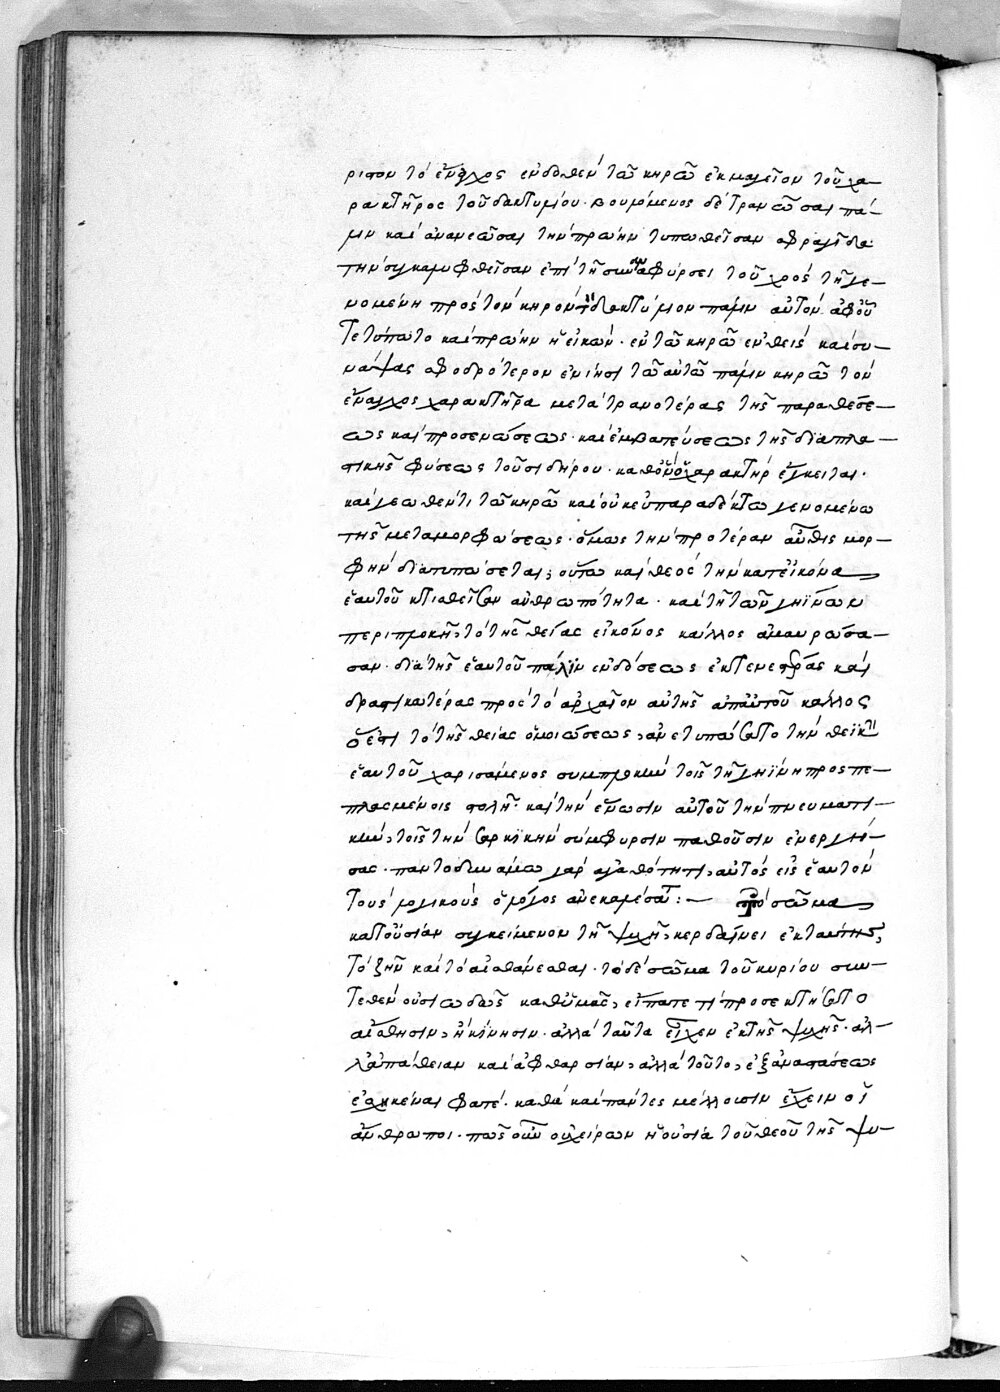 ριπον τὸ ἔναγχος ἐνδοθὲν τῶ κηρῶ ἐκμαγεῖον τοῦ χα-
ρακτῆρος τοῦ δακτυλίου. βουλόμενος δὲ τρανῶσαι πά-
λιν καὶ ἀνανεῶσαι τὴν πρώην τυπωθεῖσαν σφραγῖδα
τὴν συγκαλυφθεῖσαν ἐπὶ τῆ συναφύρσει τοῦ χρὸς τῆ γε-
νομένη πρὸς τὸν κηρὸν δακτύλιον πάλιν αὐτὸν ἀφοῦ
τετύπωτο καὶ πρώην ἡ εἰκών. ἐν τῶ κηρῶ ἐνθεὶς καὶ συ-
νάψας σφοδρότερον ἐνίησι τῶ αὐτῶ πάλιν κηρῶ τὸν
ἔναγχος χαρακτῆρα μετὰ τρανοτέρας τῆς παραθέσε-
ως καὶ προσενώσεως. καὶ ἐμβαπεύσεως τῆς διαπλα-
στικῆς φύσεως τοῦ σιδήρου. καθὸ ὁ χαρακτὴρ ἔγκειται.
καὶ γεωθέντι τῶ κηρῶ καὶ οὐκ εὐπαραδέκτω γενομένω
τῆς μεταμορφώσεως. ὅμως τὴν προτέραν αὖθις μορ-
φὴν διατυπώσεται, οὕτω καὶ θεὸς τὴν κατ εἰκόνα
ἑαυτοῦ κτισθεῖσαν ἀνθρωπότητα. καὶ τῆ τῶν γηΐνων
περιπλοκῆ, τὸ τῆς θείας εἰκόνος κάλλος ἀμαυρώσα-
σαν. διὰ τῆς ἑαυτοῦ πάλιν ἐνδόσεως ἐκτενεστέρας καὶ
δραστικωτέρας πρὸς τὸ ἀρχαῖον αὐτῆς ἀπαυτοῦ κάλλος
ὅ ἐστι τὸ τῆς θείας ὁμοιώσεως, ἀνετυπώσατο τὴν θεϊκὴν
ἑαυτοῦ χαρισάμενος συμπλοκὴν τοῖς τῆ γηΐνη προσπε-
πλασμένοις στολῆ. καὶ τὴν ἕνωσιν αὐτοῦ τὴν πνευματι-
κὴν, τοῖς τὴν σαρκικὴν σύμφυρσιν παθοῦσιν ἐνεργή-
σας. παντοδυνάμω γὰρ ἀγαθότητι, αὐτὸς εἰς ἑαυτὸν
τοὺς λογικοὺς ὁ λόγος ἀνεκαλέσατο :— τὸ σῶμα
κατουσίαν συγκείμενον τῆ ψυχῆ, κερδαίνει ἐκ ταύτης,
τὸ ζῆν καὶ τὸ αἰσθάνεσθαι. τὸ δὲ σῶμα τοῦ κυρίου συν-
τεθὲν οὐσιωδῶς καθ ὑμᾶς, εἴπατε τί προσεκτήσατο
αἴσθησιν, ἢ κίνησιν. ἀλλὰ ταῦτα εἶχεν ἐκ τῆς ψυχῆς. ἀλ-
λ ἀπάθειαν καὶ ἀφθαρσίαν, ἀλλὰ τοῦτο, ἐξ ἀναστάσεως
ἐσχηκέναι φατέ. καθὰ καὶ πάντες μέλλουσιν ἔχειν οἱ
ἄνθρωποι. πῶς οὖν οὐ χείρων ἡ οὐσία τοῦ θεοῦ τῆς ψυ-